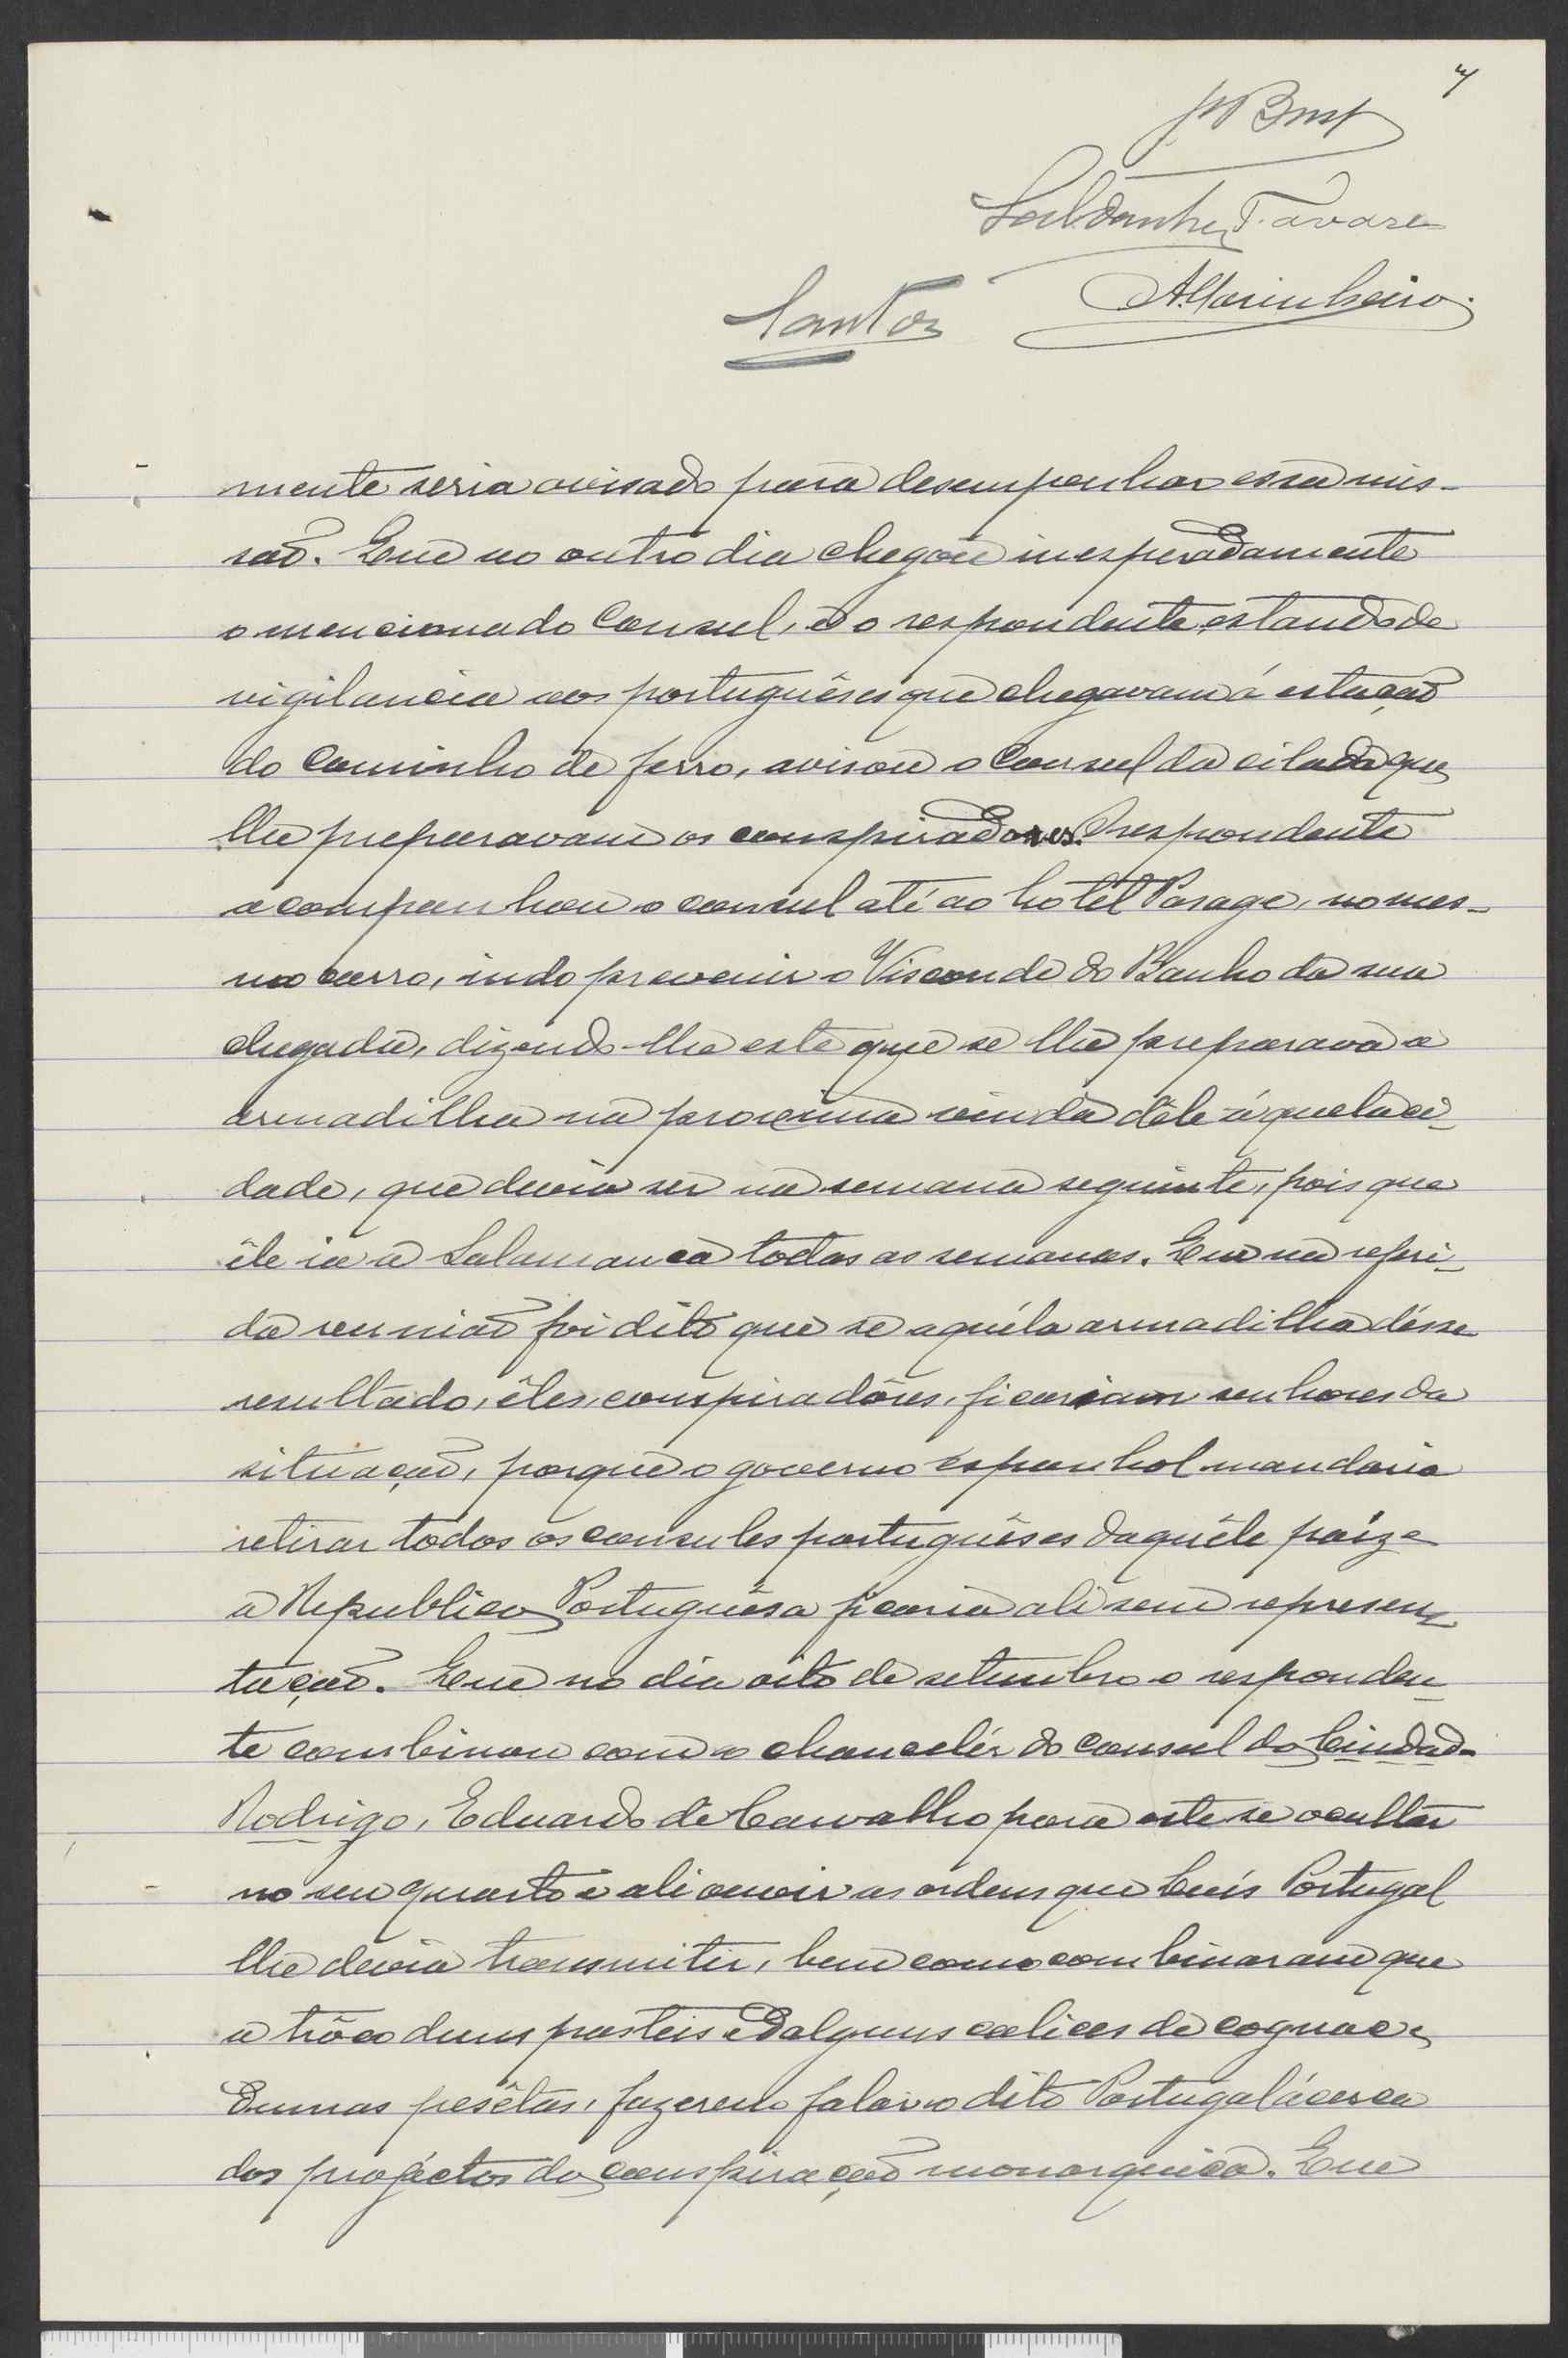 4
Saldanha Tavares
A. Marinheiro
Santos
mente seria avisado para desempenhar essa mis-
são. Que no outro dia chegou inesperadamente
o mencionado Consul, e o respondente, estando de
vigilancia aos portuguêses que chegavam á estação
do Caminho de ferro, avisou o Consul da cilada que
lhe preparavam os conspiradores. O respondente
acompanhou o consul até ao hotel Pasage, no mes-
mo carro, indo prevenir o Visconde do Banho da sua
chegada, dizendo-lhe este que se lhe preparava a
armadilha na proxima vinda dêle áquela ci-
dade, que devia ser na semana seguinte, pois que
êle ia a Salamanca todas as semanas. Que na referi-
da reunião foi dito que se aquéla armadilha désse
resultado, êles, conspiradôres, ficariam senhores da
situação, porque o governo espanhol mandaria
retirar todos os consules portuguêses daquêle paíz e
a Republica Portuguêsa ficaria ali sem represen-
tação. Que no dia oito de setembro o responden-
te combinou com o chancelér do consul da Ciudad-
Rodrigo, Eduardo de Carvalho para este se ocultar
no seu quarto e ali ouvir as ordens que Luís Portugal
lhe devia transmitir, bem como combinaram que
a trôco duns pasteis e dalguns calices de cognac e
dumas pesêtas, fazerem falar o dito Portugal ácerca
dos projéctos da conspiração monarquica. Que